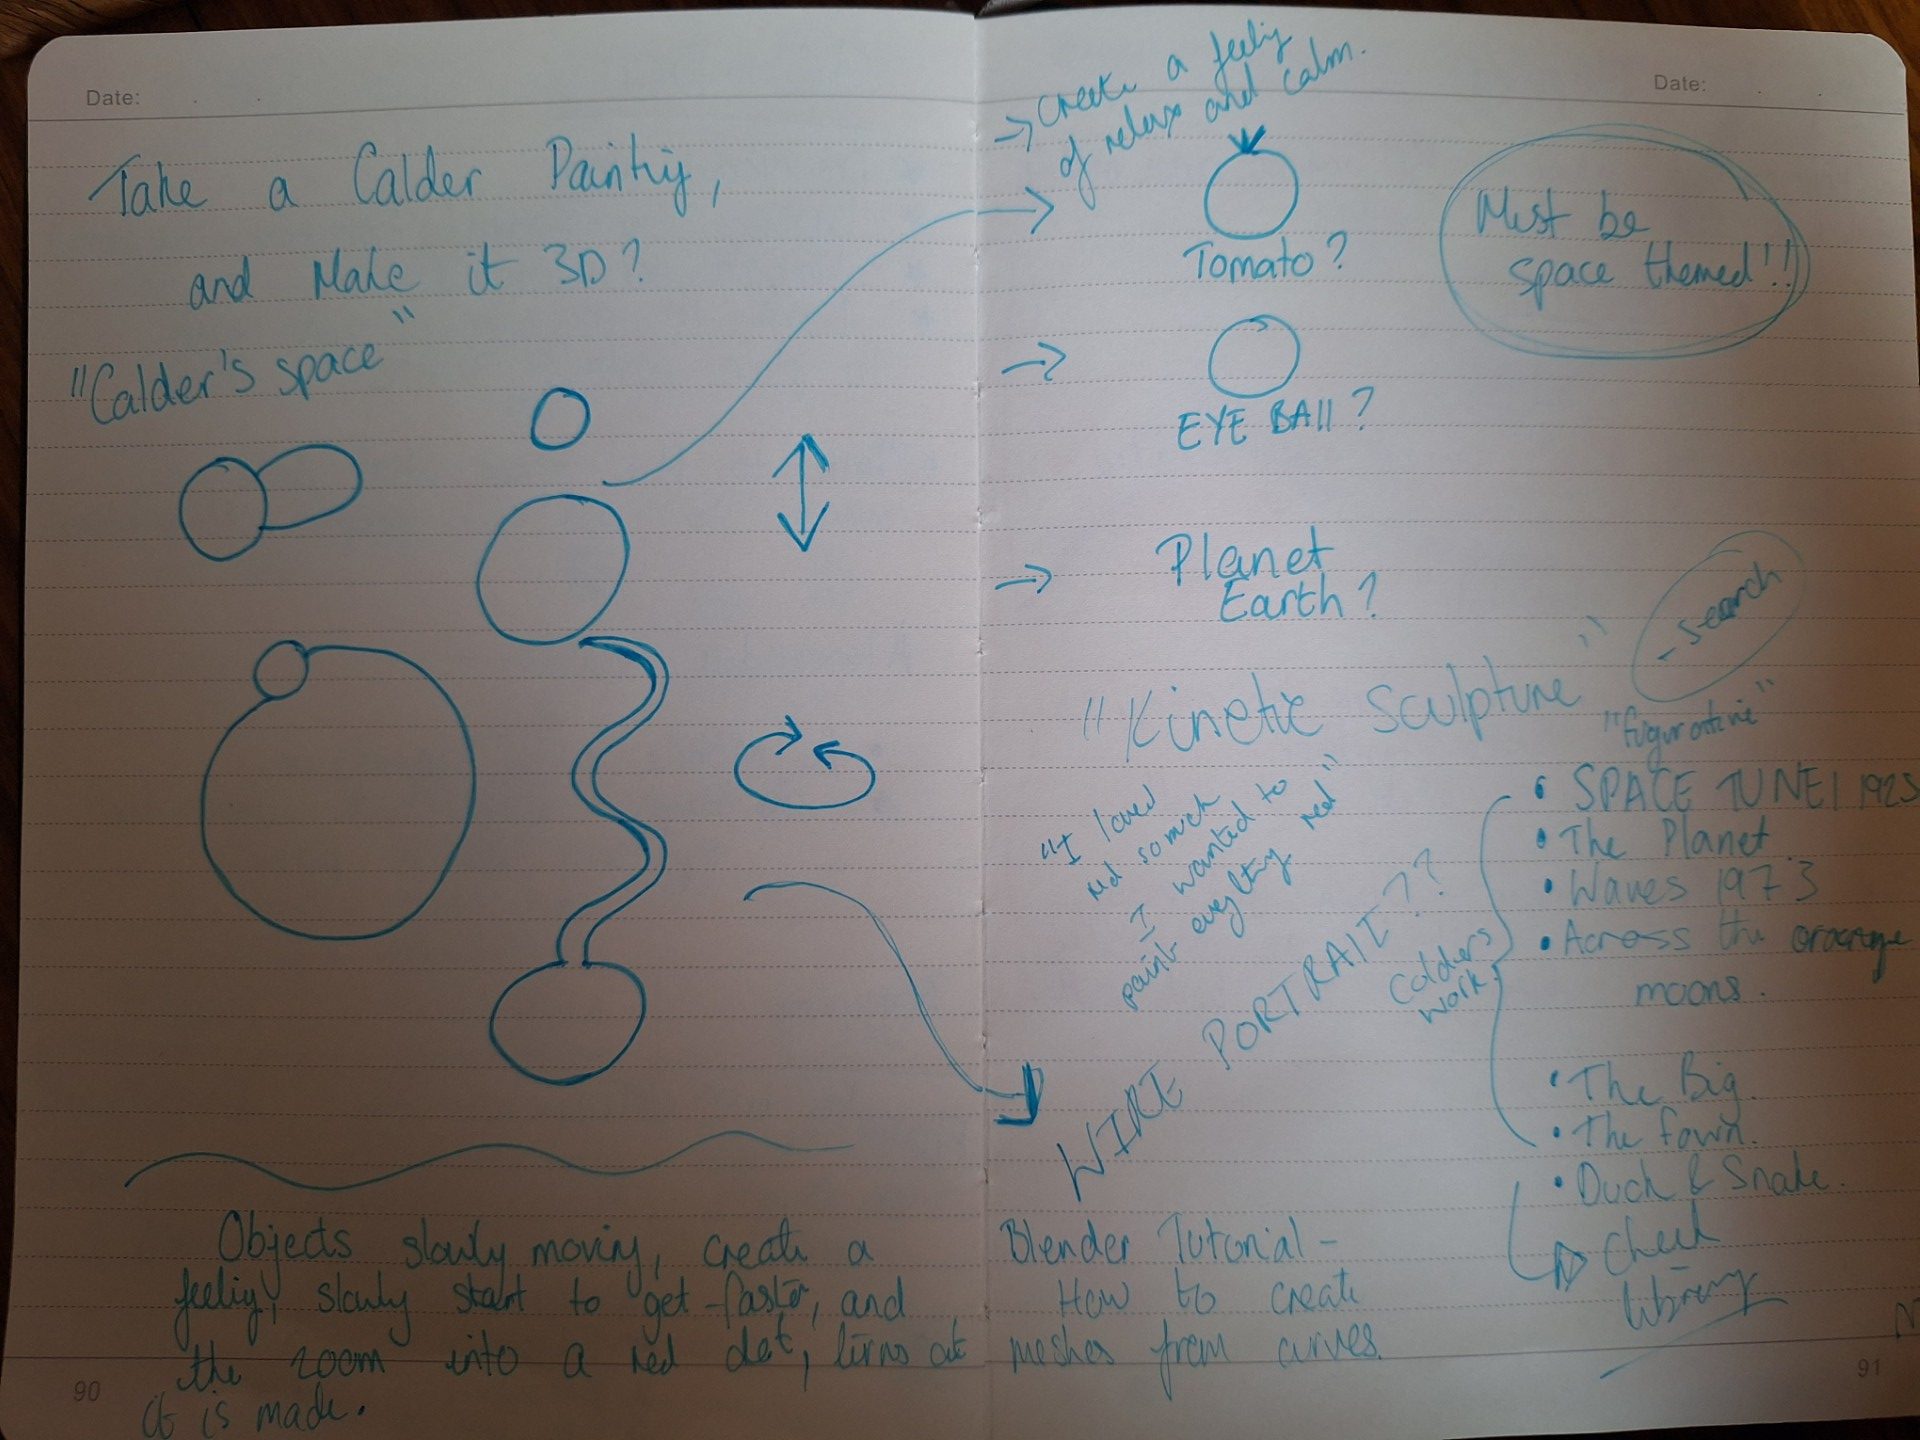 Date:
Take a Calder Painting,
and Make it 3D?
"Calder's space"
Objects slowly moving, create a
feeling, slowly start to get faster, and
the zoom into a red dot, turns out
it is made.
90
Date:
→ Create a feeling
of relax and calm.
Tomato?
Must be
space themed!!
→
EYE BAll?
→ Planet
Earth?
"Kinetic Sculpture"
- search
"I loved
red so much
I wanted to
paint everything red"
WIRE PORTRAIT??
Calders
work.
• SPACE TUNEl 1925
• The Planet
• Waves 1973
• Across the orange
moons.
• The Big.
• The fawn.
• Duck & Snake.
Check
library
Blender Tutorial -
How to create
meshes from curves.
91